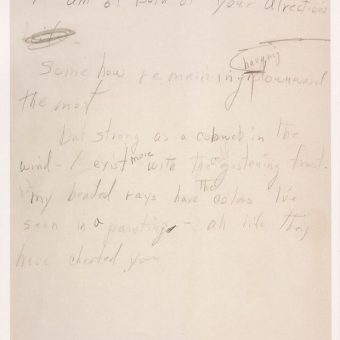 I am of both of your directions
hanging
Some how remaining downward
the most
but strong as a cobweb in the
wind - I exist more with the glistening frost -
my beaded rays have the colors I've
seen in a painting - ah life they
have cheated you